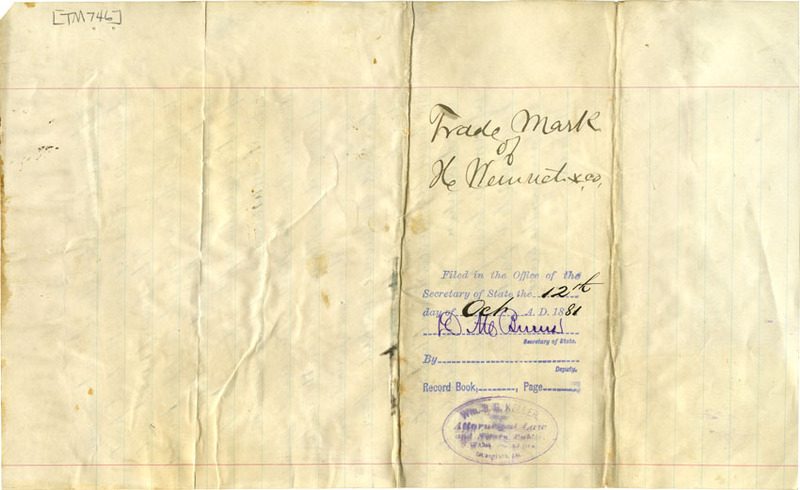 [TM746]
Trade Mark
of
H. Weinrich & co,
Filed in the Office of the
Secretary of State the 12th
day of Oct A. D. 1881
D M Burns
Secretary of State.
By
Deputy.
Record Book, , Page
Wm. B. B. KELLER,
Attorney at Law
and Notary Public,